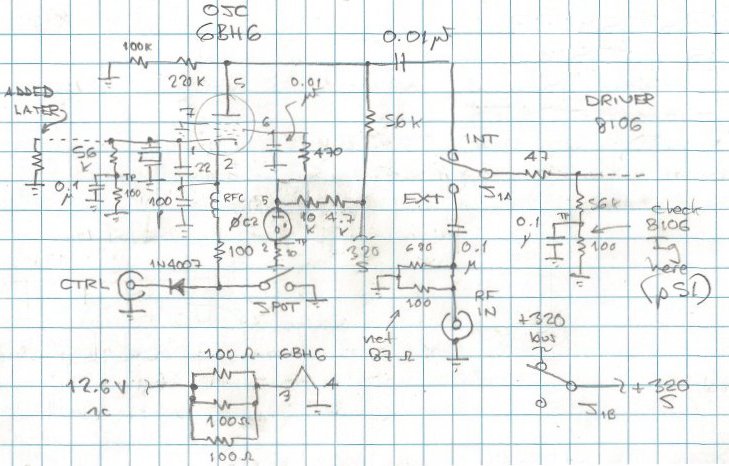 OSC
6BH6
0.01 µ
100K
220K
5
0.01
µ
ADDED
LATER
DRIVER
8106
7
6
56K
56
K
1
22
2
470
INT
47
TP
0.1
µ
100
100
RFC
5
ØC2
10
K
4.7
K
S1A
EXT
56K
check
8106
Ig
here
(p51)
0.1
µ
TP
100
2
TP
10
320
S
680
0.1
µ
100
1N4007
CTRL
100
SPOT
RF
IN
net
87 Ω
+320
bus
100 Ω
6BH6
12.6V
3
4
100Ω
100Ω
+320
S
S1B